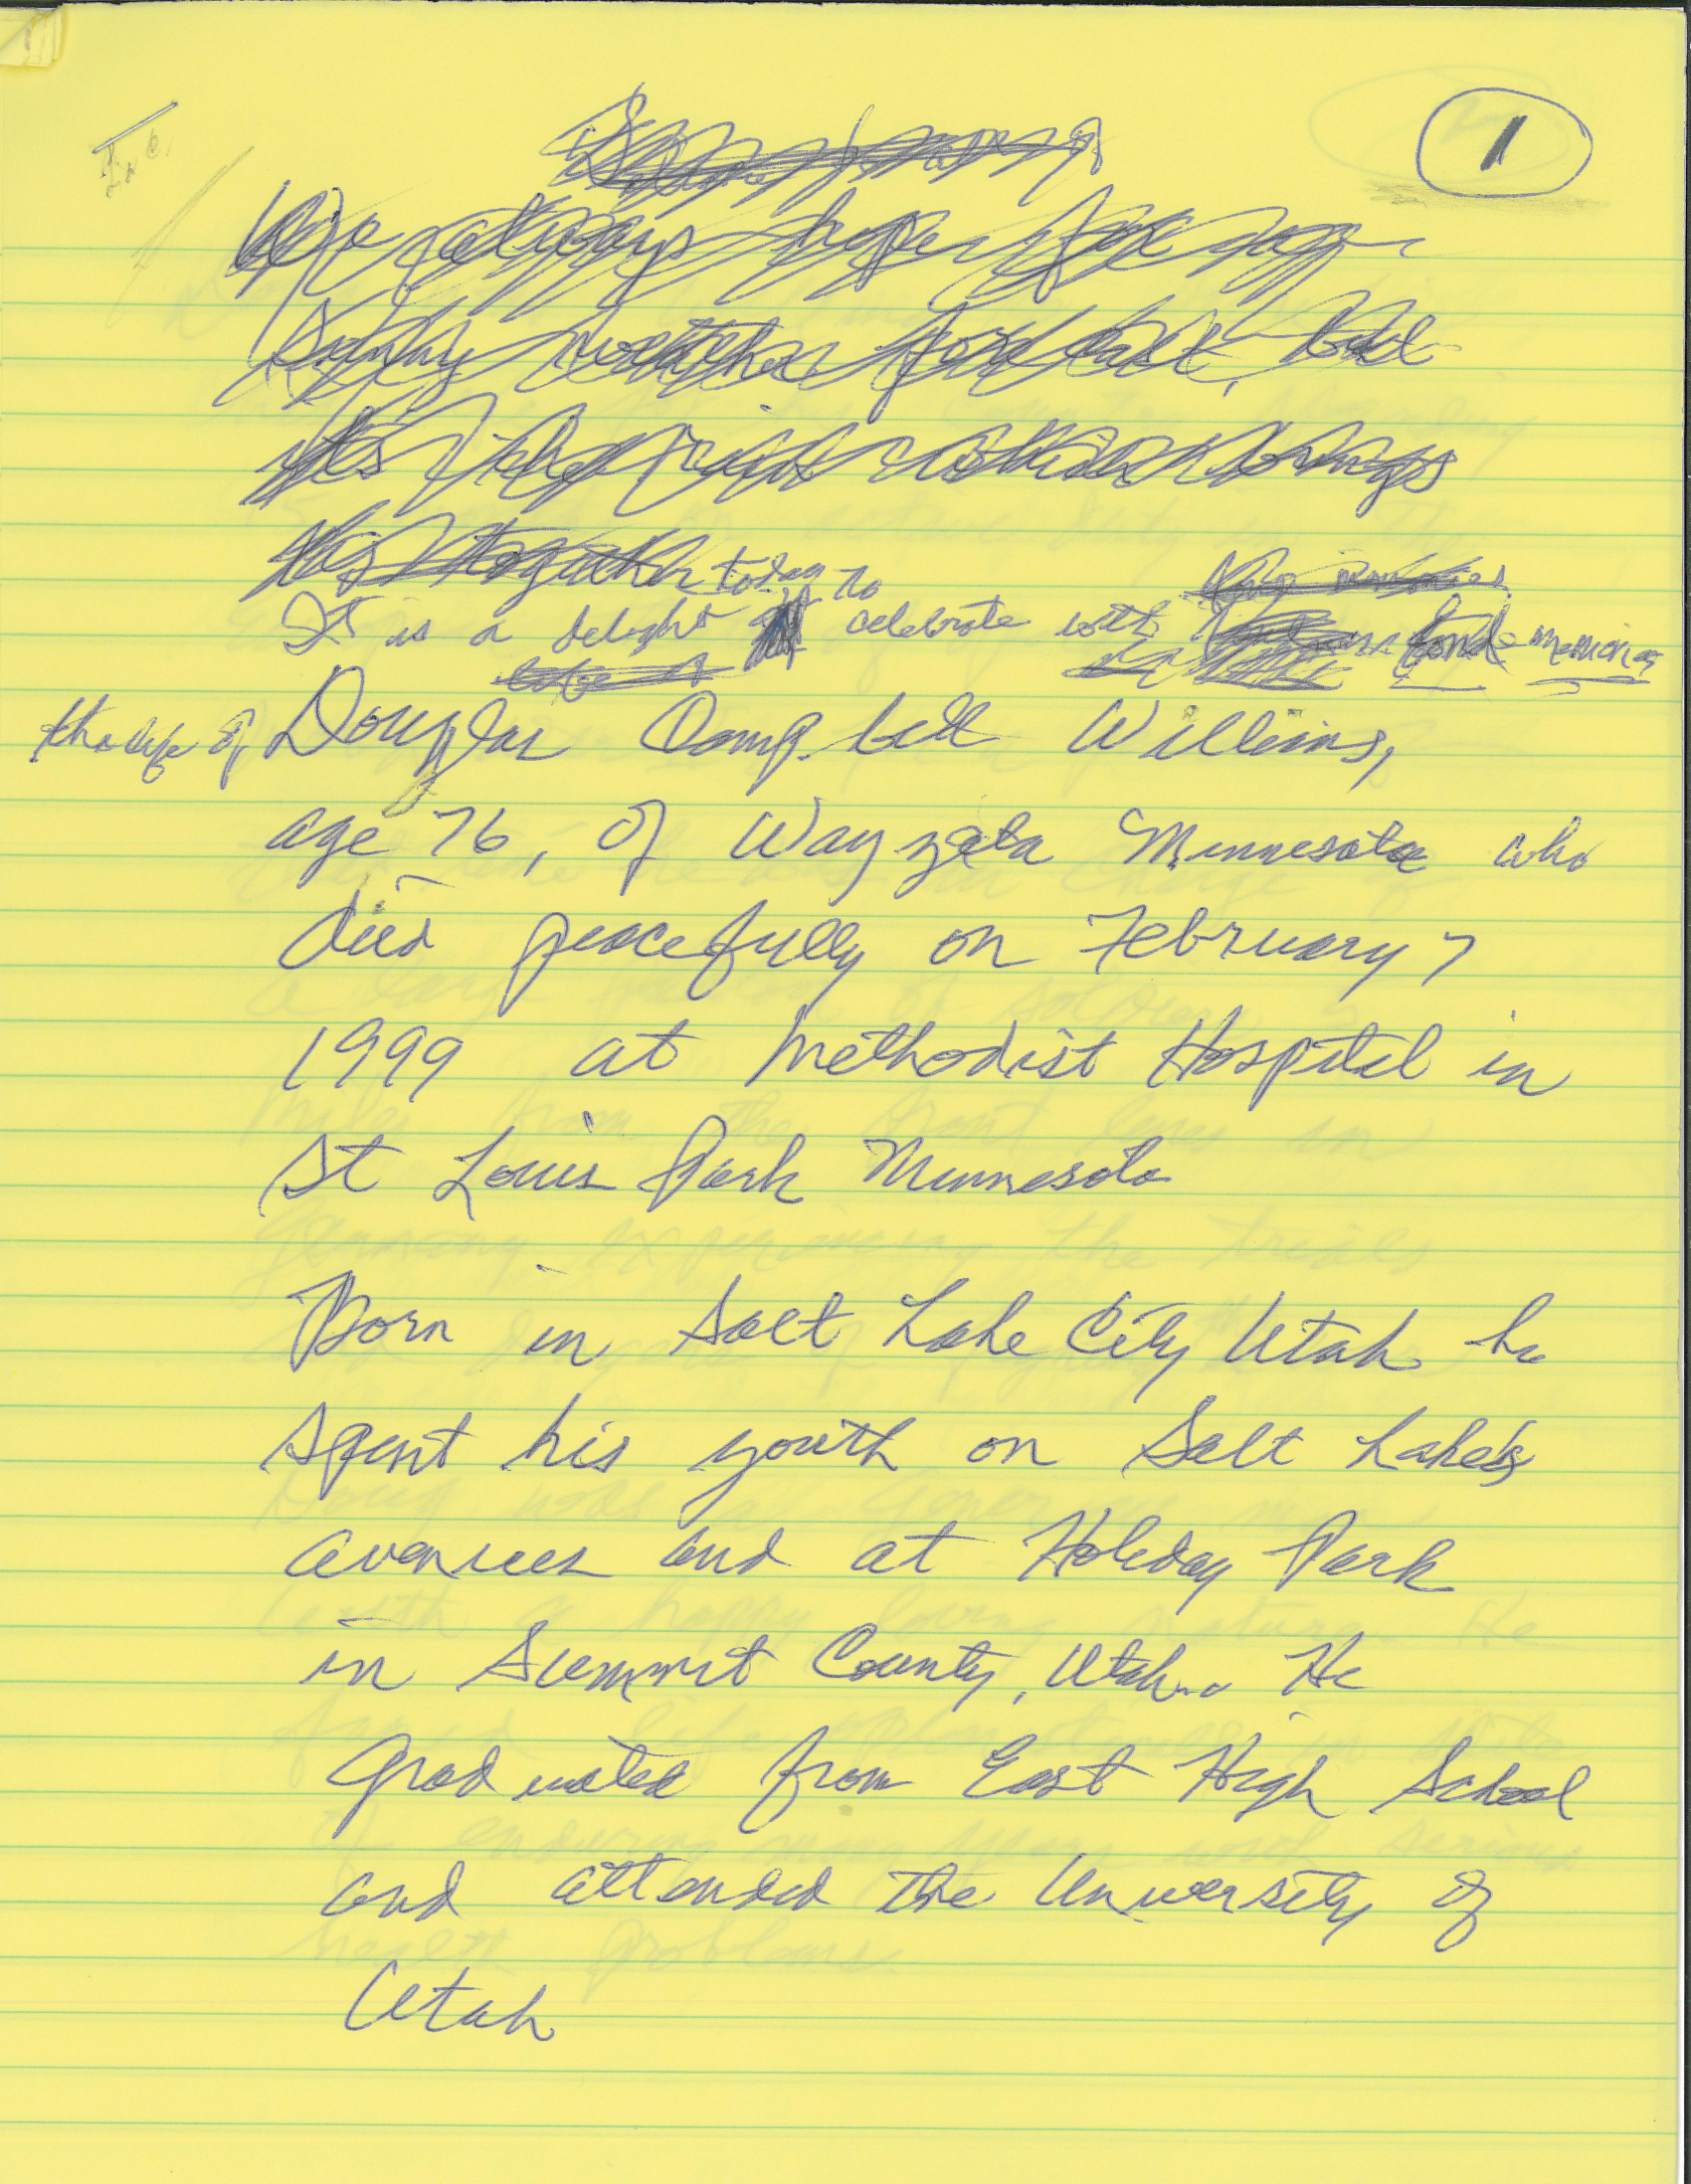 1
We always hope for
sunny weather forecast, but
its the
today to
It is a delight celebrate with fond memories
the life of Douglas Campbell Williams,
age 76, of Wayzata Minnesota who
died peacefully on February 7
1999 at Methodist Hospital in
St Louis Park Minnesota
Born in Salt Lake City Utah he
spent his youth on Salt Lake's
avenues and at Holiday Park
in Summit County, Utah. He
graduated from East High School
and attended the University of
Utah